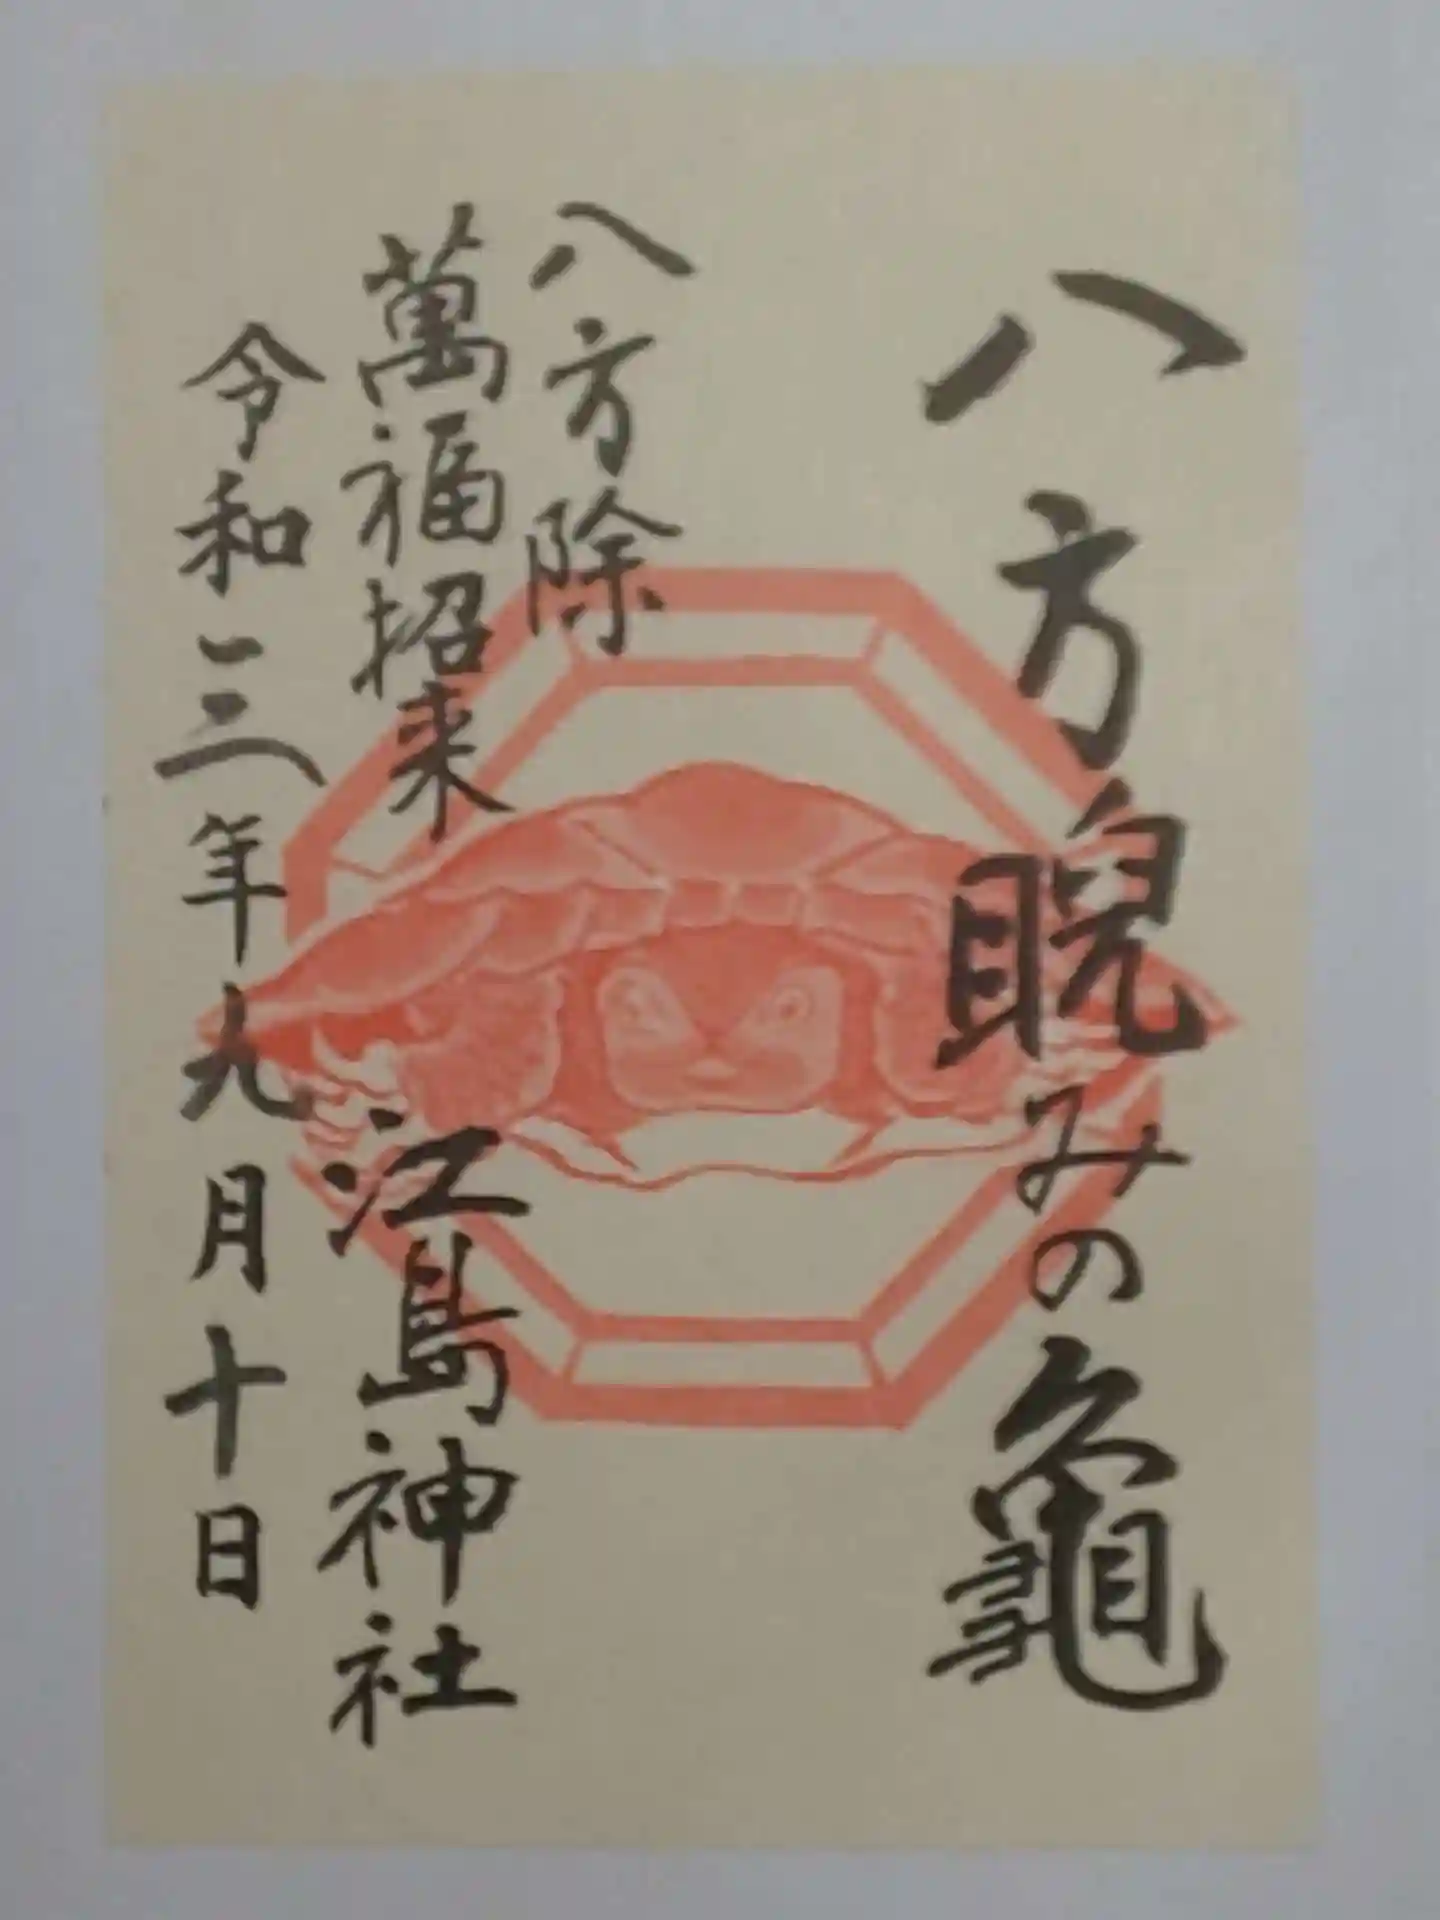 八方睨みの龜
八方除
萬福招来
江島神社
令和三年九月十日